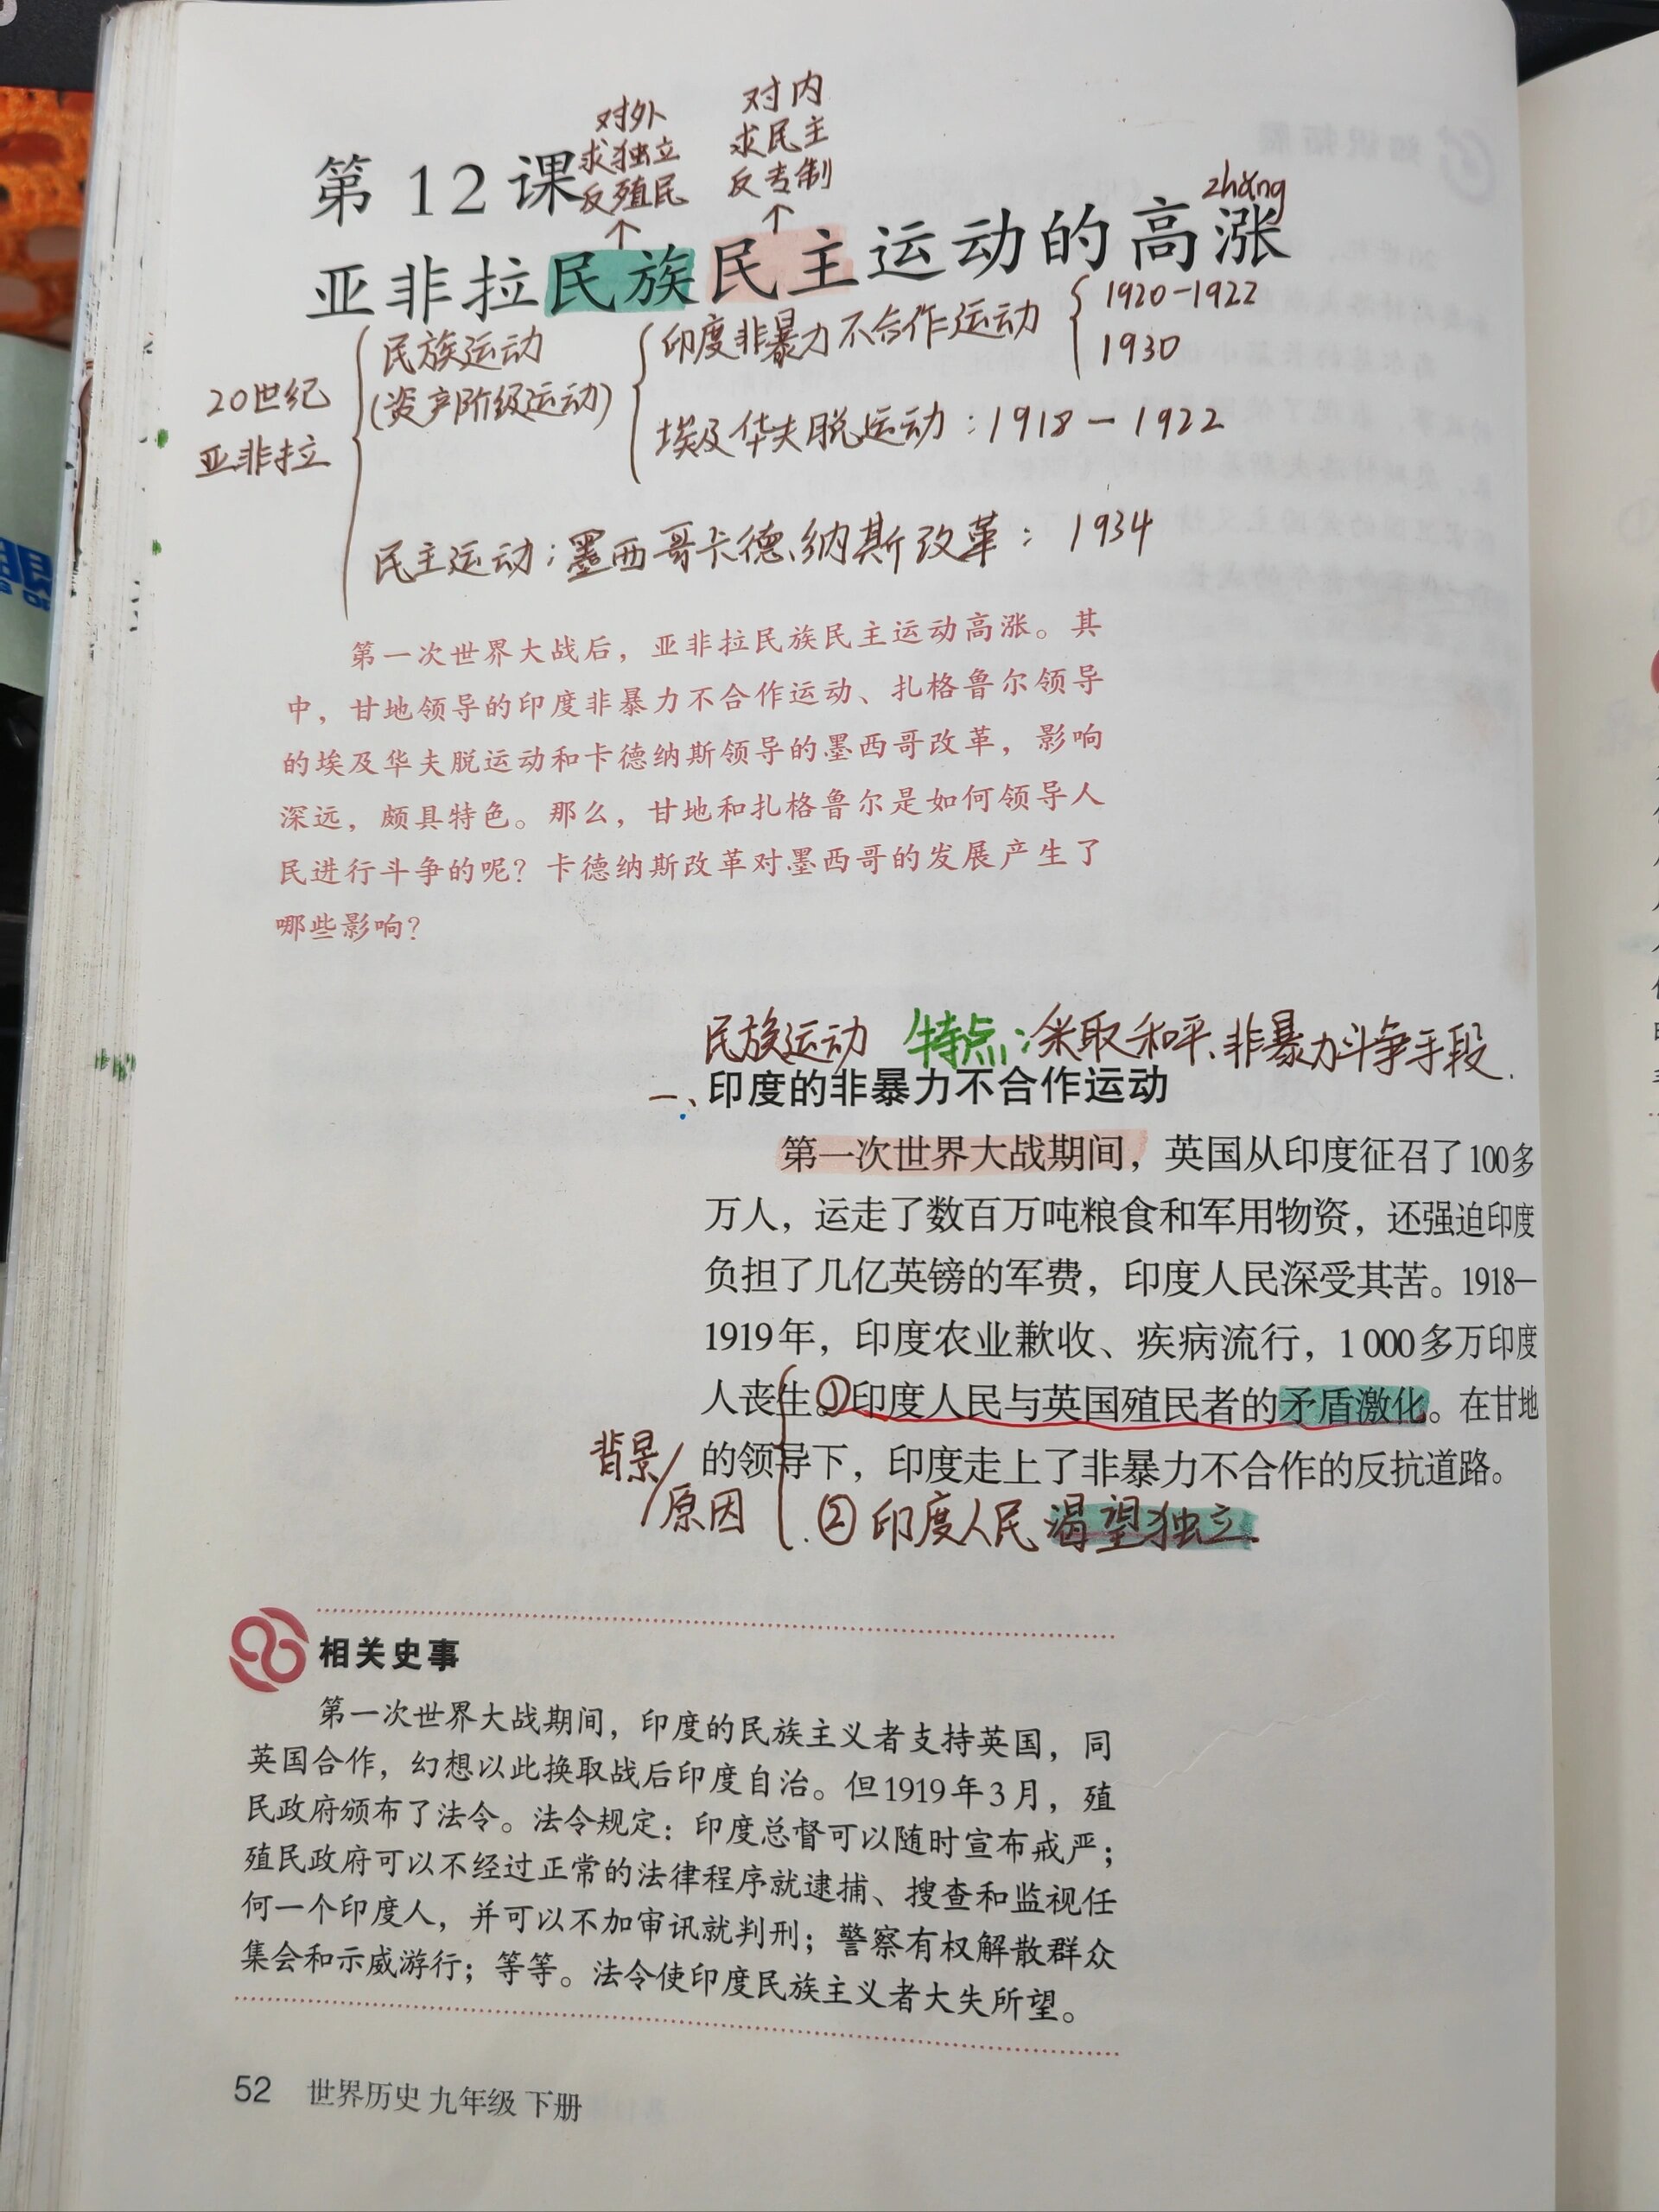 对外 对内
求独立 求民主
反殖民 反专制
第 12 课
zhǎng
亚非拉民族民主运动的高涨
民族运动
(资产阶级运动)
20世纪
亚非拉
印度非暴力不合作运动
1920-1922
1930
埃及华夫脱运动：1918-1922
民主运动：墨西哥卡德纳斯改革：1934
第一次世界大战后，亚非拉民族民主运动高涨。其
中，甘地领导的印度非暴力不合作运动、扎格鲁尔领导
的埃及华夫脱运动和卡德纳斯领导的墨西哥改革，影响
深远，颇具特色。那么，甘地和扎格鲁尔是如何领导人
民进行斗争的呢？卡德纳斯改革对墨西哥的发展产生了
哪些影响？
民族运动 特点：采取和平、非暴力斗争手段.
一、印度的非暴力不合作运动
第一次世界大战期间，英国从印度征召了100多
万人，运走了数百万吨粮食和军用物资，还强迫印度
负担了几亿英镑的军费，印度人民深受其苦。1918—
1919年，印度农业歉收、疾病流行，1 000多万印度
人丧生。①印度人民与英国殖民者的矛盾激化。在甘地
的领导下，印度走上了非暴力不合作的反抗道路。
背景/
原因
②印度人民渴望独立.
相关史事
第一次世界大战期间，印度的民族主义者支持英国，同
英国合作，幻想以此换取战后印度自治。但1919年3月，殖
民政府颁布了法令。法令规定：印度总督可以随时宣布戒严；
殖民政府可以不经过正常的法律程序就逮捕、搜查和监视任
何一个印度人，并可以不加审讯就判刑；警察有权解散群众
集会和示威游行；等等。法令使印度民族主义者大失所望。
52 世界历史 九年级 下册